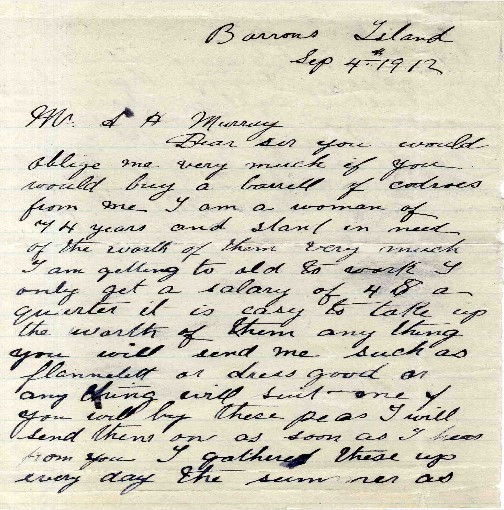 Barrons Island
Sep 4th 1912
Mr. S A Murray
Dear ser you would
oblige me very much if you
would buy a barrell of codroes
from me I am a woman of
74 years and stand in need
of the worth of them very much
I am getting to old to work I
only get a salary of 48 a
quierter it is easy to take up
the worth of them any thing
you will send me such as
flannelett or dress good or
any thing will suit me if
you will by these peas I will
send them on as soon as I hear
from you I gathered these up
every day the summer as